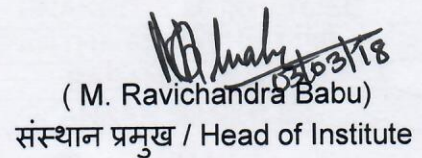 03/03/18
( M. Ravichandra Babu)
संस्थान प्रमुख / Head of Institute